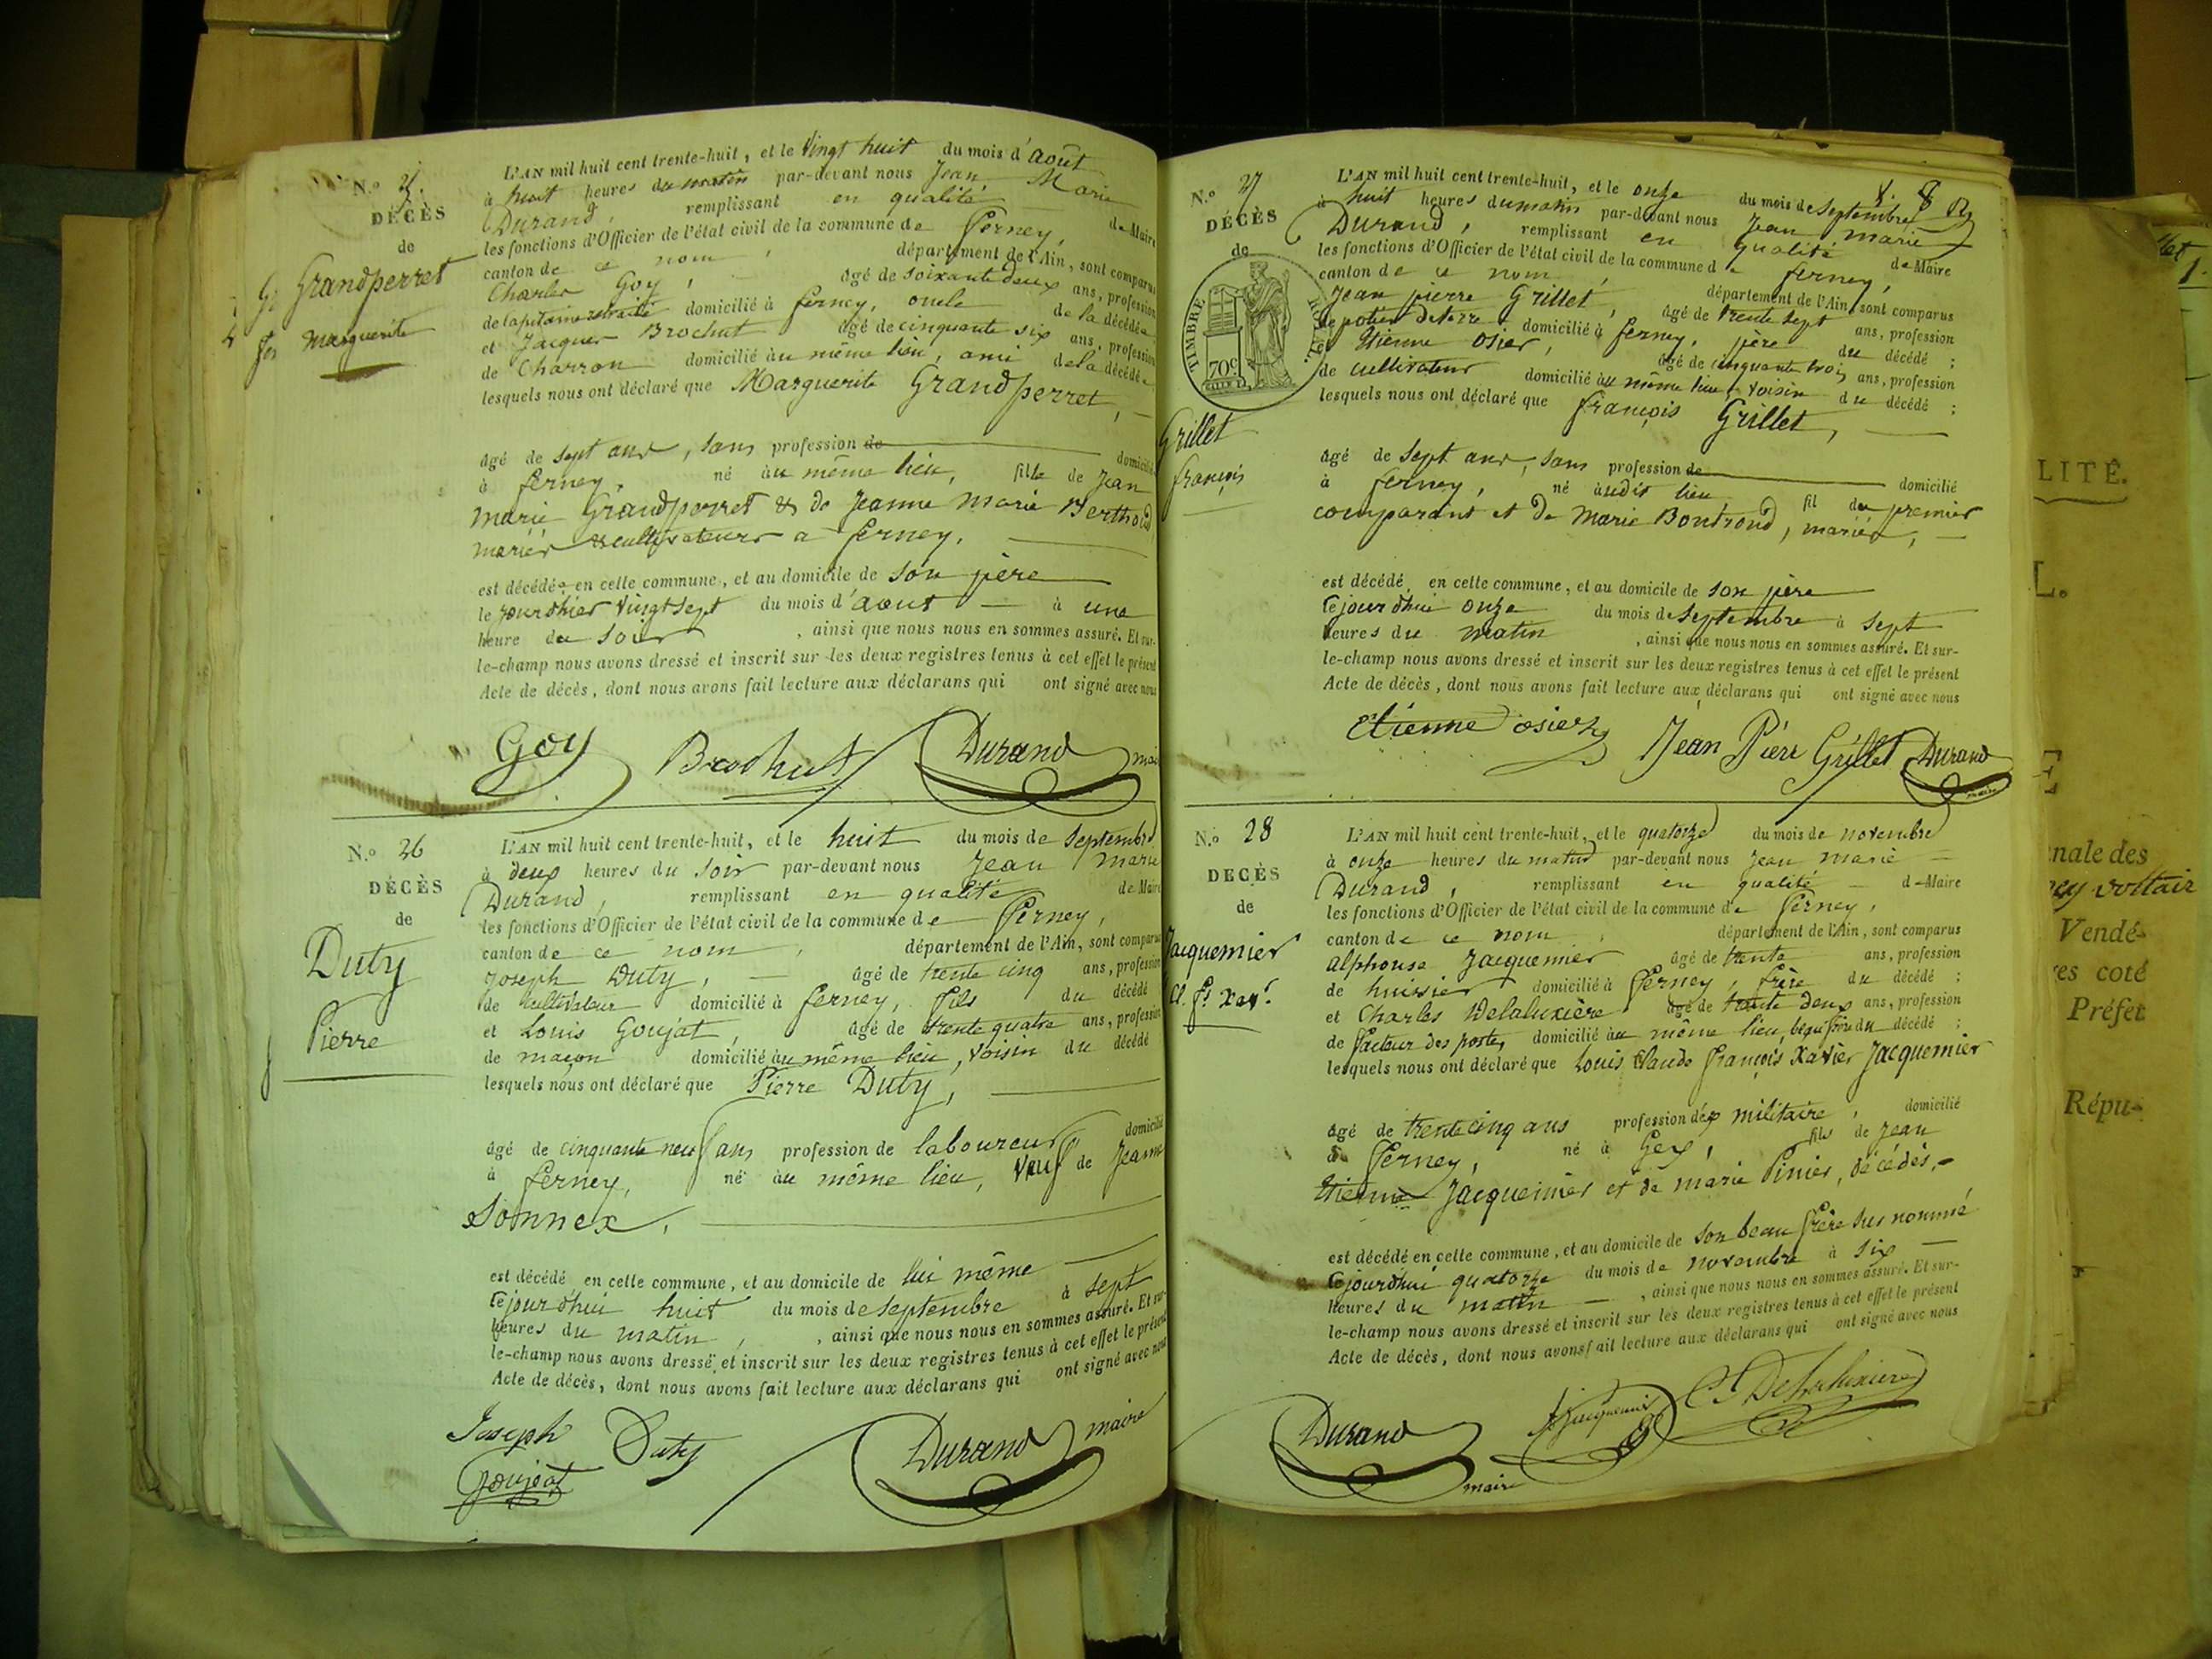 N.o 25.
DÉCÈS
de
Grandperret
Marguerite
L'AN mil huit cent trente-huit, et le vingt huit du mois d'août
à huit heures du matin par-devant nous Jean Marie
Durand, remplissant en qualité de Maire
les fonctions d'Officier de l'état civil de la commune de Ferney,
canton de ce nom, département de l'Ain, sont comparus
Charles Goy, âgé de soixante deux ans, profession
de capitaine retraité domicilié à ferney, oncle de la décédée
et Jacques Brochut âgé de cinquante six ans, profession
de Charron domicilié au même lieu, ami de la décédée
lesquels nous ont déclaré que Marguerite Grandperret,
âgé de sept ans, sans profession de domicilié
à ferney, né au même lieu, fille de Jean
marie Grandperret & de Jeanne marie Berthod,
mariés & cultivateurs a ferney.
est décédée en cette commune, et au domicile de son père
le jour d'hier vingt sept du mois d'aout à une
heure du soir, ainsi que nous nous en sommes assuré. Et sur-
le-champ nous avons dressé et inscrit sur les deux registres tenus à cet effet le présent
Acte de décès, dont nous avons fait lecture aux déclarans qui ont signé avec nous
Goy Brochut Durand maire
N.o 26
DÉCÈS
de
Duty
Pierre
L'AN mil huit cent trente-huit, et le huit du mois de septembre
à deux heures du soir par-devant nous Jean marie
Durand, remplissant en qualité de Maire
les fonctions d'Officier de l'état civil de la commune de Ferney,
canton de ce nom, département de l'Ain, sont comparus
Joseph Duty, âgé de trente cinq ans, profession
de cultivateur domicilié à ferney, fils du décédé
et Louis Goujat, âgé de trente quatre ans, profession
de maçon domicilié au même lieu, voisin du décédé
lesquels nous ont déclaré que Pierre Duty,
âgé de cinquante neuf ans profession de laboureur domicilié
à ferney, né au même lieu, veuf de Jeanne
Sonnex.
est décédé en cette commune, et au domicile de lui même
Cejourd'hui huit du mois de septembre à sept
heures du matin, ainsi que nous nous en sommes assuré. Et sur-
le-champ nous avons dressé et inscrit sur les deux registres tenus à cet effet le présent
Acte de décès, dont nous avons fait lecture aux déclarans qui ont signé avec nous
Joseph Duty Durand maire
Goujat
N.o 27
DÉCÈS
de
TIMBRE ROYAL.
70c.
Grillet
françois
L'AN mil huit cent trente-huit, et le onze du mois de septembre
à huit heures du matin par-devant nous Jean marie
Durand, remplissant en qualité de Maire
les fonctions d'Officier de l'état civil de la commune de ferney,
canton de ce nom, département de l'Ain, sont comparus
Jean pierre Grillet, âgé de trente sept ans, profession
de potier de terre domicilié à ferney, père du décédé ;
et Etienne osier, âgé de cinquante trois ans, profession
de cultivateur domicilié au même lieu, voisin du décédé ;
lesquels nous ont déclaré que françois Grillet,
âgé de sept ans, sans profession de domicilié
à ferney, né audit lieu fil du premier
comparant et de marie Bontrond, mariés,
est décédé en cette commune, et au domicile de son père
Cejourd'hui onze du mois de septembre à sept
heures du matin, ainsi que nous nous en sommes assuré. Et sur-
le-champ nous avons dressé et inscrit sur les deux registres tenus à cet effet le présent
Acte de décès, dont nous avons fait lecture aux déclarans qui ont signé avec nous
Etienne osier Jean Piere Grillet Durand
maire
N.o 28
DÉCÈS
de
Jacquemier
Cl. fs. Xavr.
L'AN mil huit cent trente-huit, et le quatorze du mois de novembre
à onze heures du matin par-devant nous Jean marie
Durand, remplissant en qualité de Maire
les fonctions d'Officier de l'état civil de la commune de Ferney,
canton de ce nom, département de l'Ain, sont comparus
alphonse Jacquemier âgé de trente ans, profession
de huissier domicilié à Ferney, frère du décédé ;
et Charles Delaluxière âgé de trente deux ans, profession
de facteur des postes domicilié au même lieu, beau frère du décédé ;
lesquels nous ont déclaré que Louis Claude françois Xavier Jacquemier
âgé de trente cinq ans profession d'ex militaire, domicilié
à Ferney, né à Gex, fils de Jean
Etienne Jacquemier et de marie Pinier, décédés,
est décédé en cette commune, et au domicile de son beau frère sus nommé
Cejourd'hui quatorze du mois de novembre à six
heures du matin, ainsi que nous nous en sommes assuré. Et sur-
le-champ nous avons dressé et inscrit sur les deux registres tenus à cet effet le présent
Acte de décès, dont nous avons fait lecture aux déclarans qui ont signé avec nous
Durand Jacquemier Ch Delaluxière
maire
LITÉ.
nale des
ney voltair
Vendé-
res coté
Préfet
Répu-